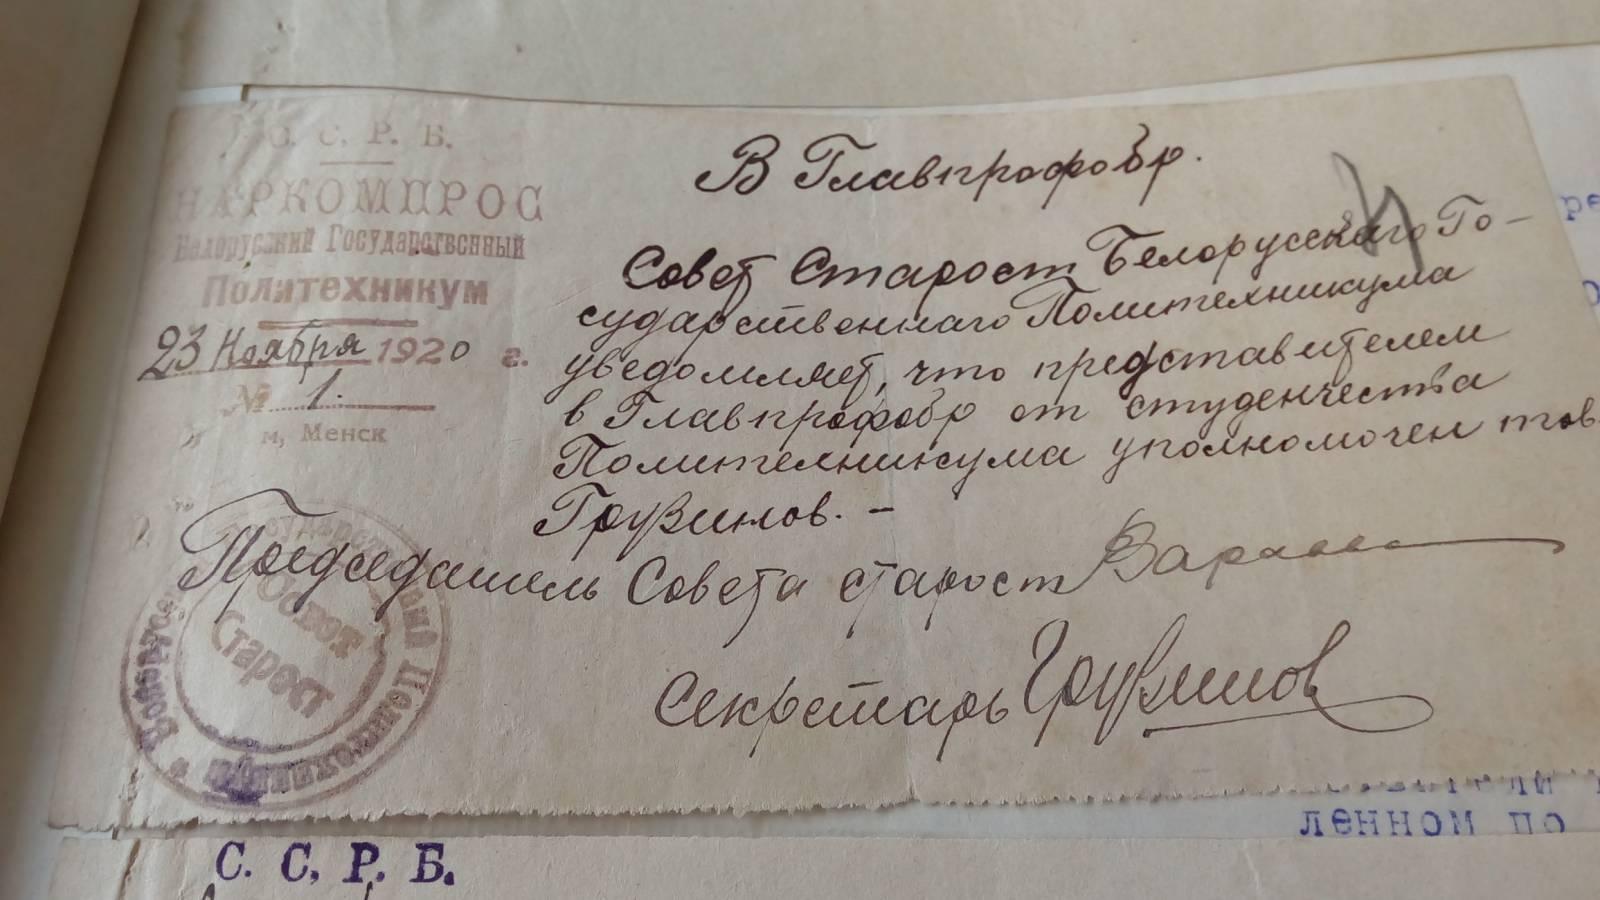 С. С. Р. Б.
НАРКОМПРОС
Белорусский Государственный
Политехникум
23 Ноября 1920 г.
№ 1.
м, Менск
В Главпрофобр.
Совет Старост Белорусскаго Го-
сударственнаго Политехникума
уведомляет, что представителем
в Главпрофобр от студенчества
Политехникума уполномочен тов.
Грузинов. -
Председатель Совета старост
Секретарь Грузинов
Совет
Старост
ленном по
С. С, Р. Б.